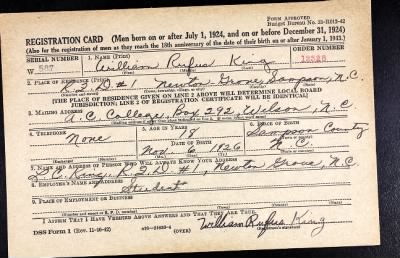 FORM APPROVED
Budget Bureau No. 33-R013-42
REGISTRATION CARD (Men born on or after July 1, 1924, and on or before December 31, 1924)
(Also for the registration of men as they reach the 18th anniversary of the date of their birth on or after January 1, 1943.)
SERIAL NUMBER
1. NAME (Print)
ORDER NUMBER
W 587
William Rufus King
2. PLACE OF RESIDENCE (Print)
R.F.D. #1, Newton Grove, Sampson, N.C.
[THE PLACE OF RESIDENCE GIVEN ON LINE 2 ABOVE WILL DETERMINE LOCAL BOARD
JURISDICTION; LINE 2 OF REGISTRATION CERTIFICATE WILL BE IDENTICAL]
3. MAILING ADDRESS
A.C. College, Box 292, Wilson, N.C.
4. TELEPHONE
5. AGE IN YEARS
6. PLACE OF BIRTH
None
18
Sampson County
DATE OF BIRTH
Nov. 6 1926
N.C.
7. NAME AND ADDRESS OF PERSON WHO WILL ALWAYS KNOW YOUR ADDRESS
King, R.F.D. #1, Newton Grove N.C.
8. EMPLOYER'S NAME AND ADDRESS
Student
9. PLACE OF EMPLOYMENT OR BUSINESS
I AFFIRM THAT I HAVE VERIFIED ABOVE ANSWERS AND THAT THEY ARE TRUE.
DSS Form 1 (Rev. 11-16-42)
William Rufus King
(Registrant's signature)